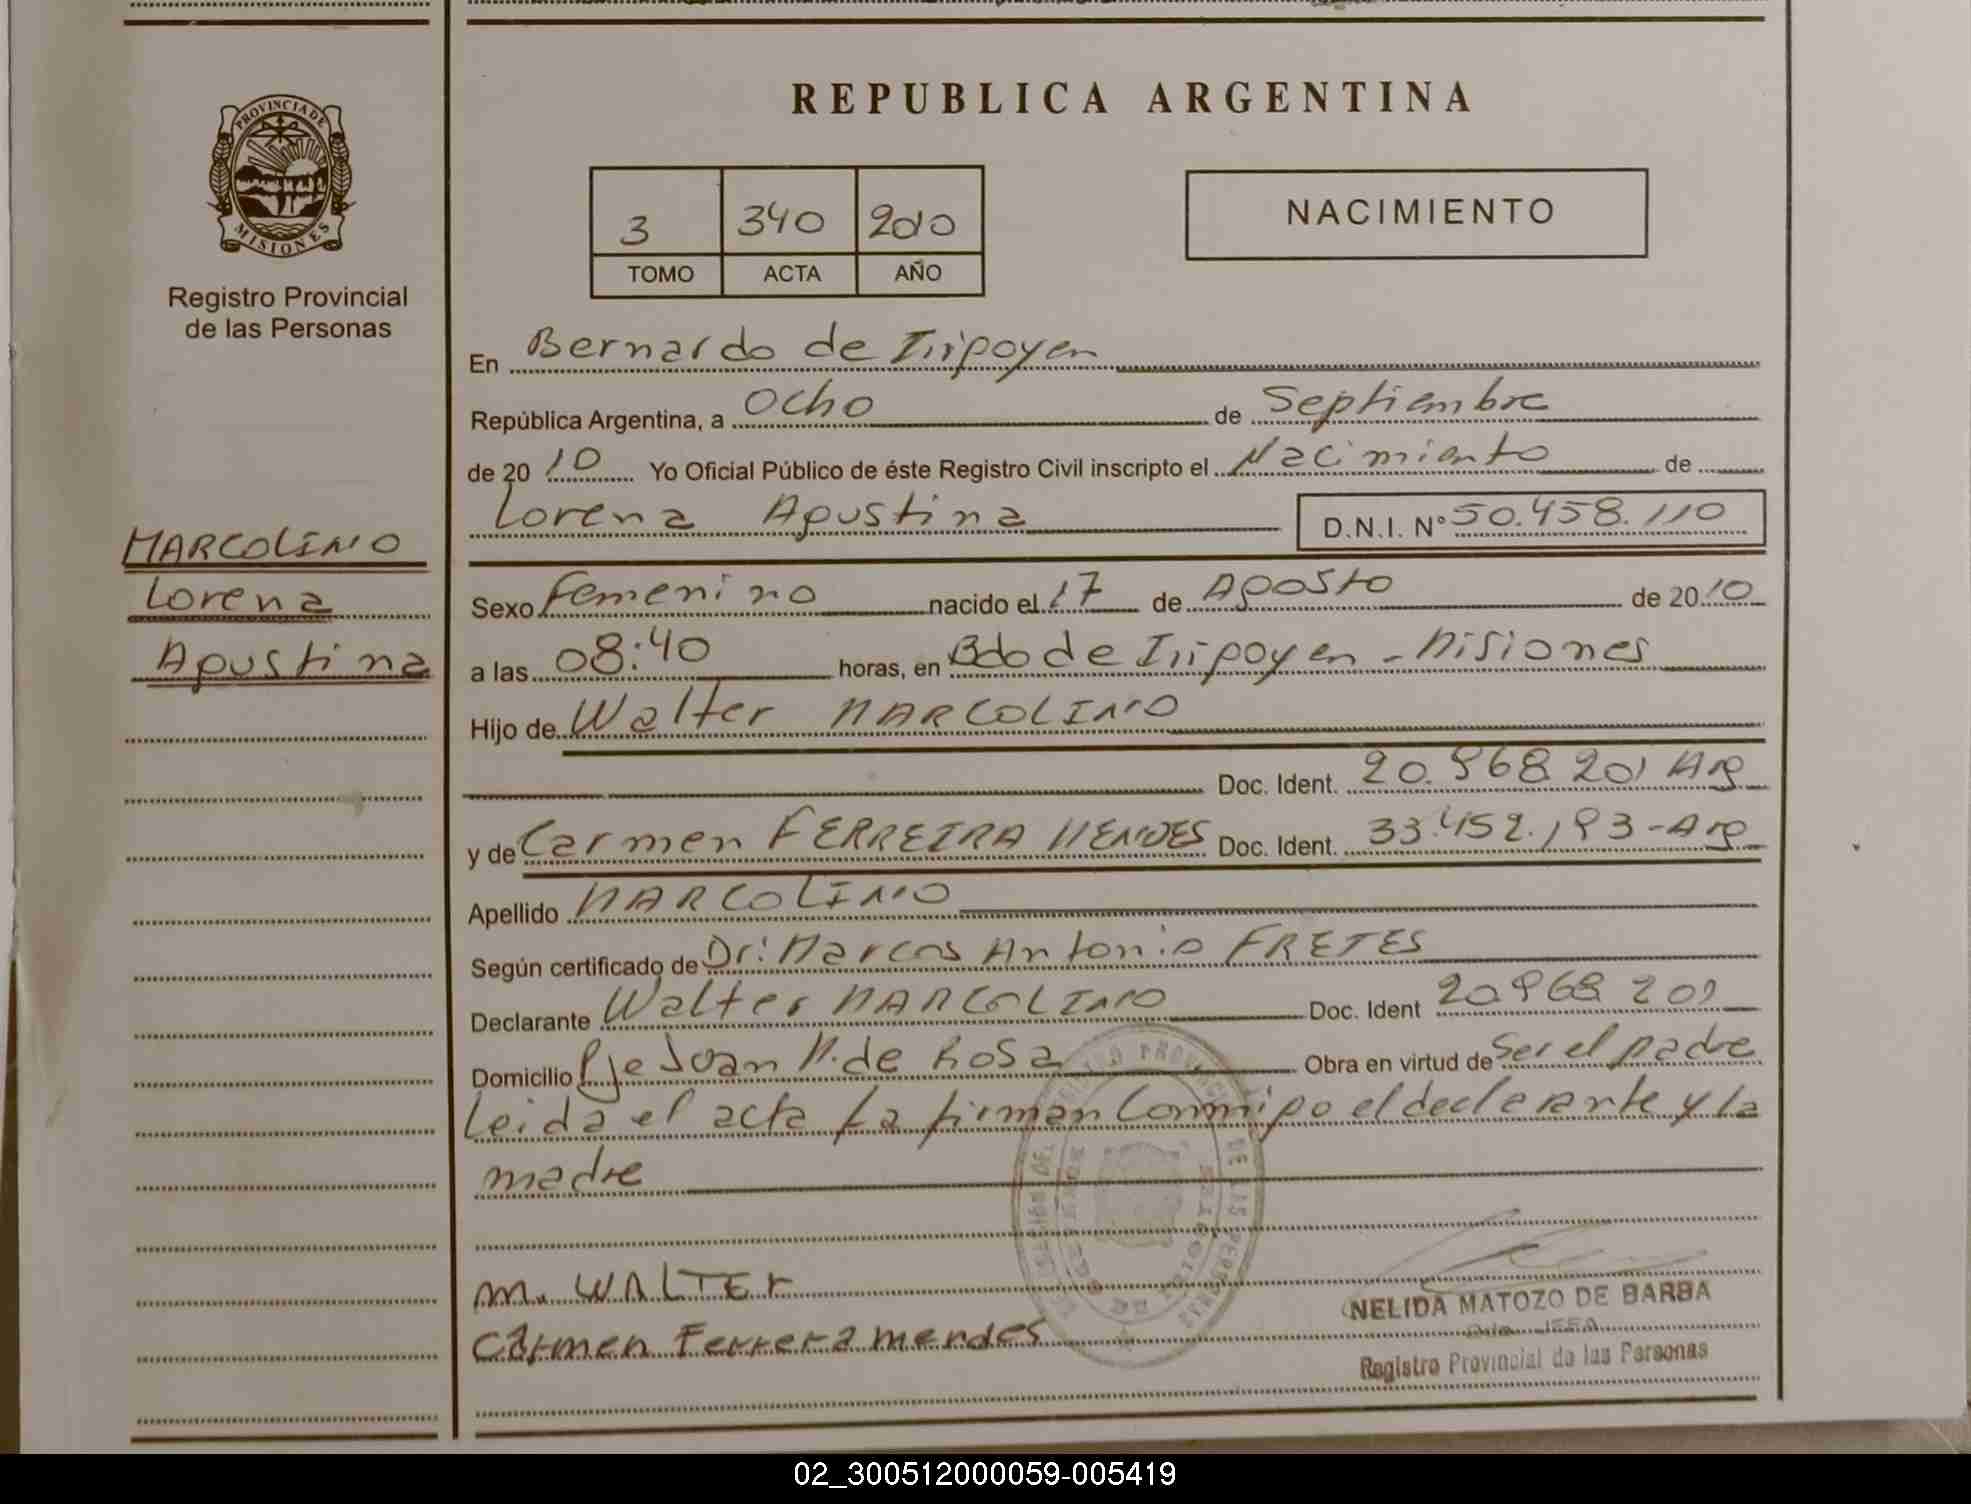 REPUBLICA ARGENTINA
PROVINCIA DE
MISIONES
Registro Provincial
de las Personas
3 340 2010
TOMO ACTA AÑO
NACIMIENTO
En Bernardo de Irigoyen
República Argentina, a Ocho de Septiembre
de 20 10 Yo Oficial Público de éste Registro Civil inscripto el Nacimiento de
Lorena Agustina D.N.I. Nº 50.458.110
MARCOLINO
Lorena
Agustina
Sexo Femenino nacido el 17 de Agosto de 20 10
a las 08:40 horas, en Bdo de Irigoyen - Misiones
Hijo de Walter MARCOLINO
Doc. Ident. 20.968.201 Arg
y de Carmen FERREIRA MENDES Doc. Ident. 33.452.193-Arg
Apellido MARCOLINO
Según certificado de Dr: Marcos Antonio FRETES
Declarante Walter MARCOLINO Doc. Ident 20.968.201
Domicilio Pje Juan M. de Rosa Obra en virtud de Ser el padre
Leida el acta la firman Conmigo el declarante y la
madre
M. WALTER
Carmen Ferrera mendes
NELIDA MATOZO DE BARBA
Registro Provincial de las Personas
02_300512000059-005419